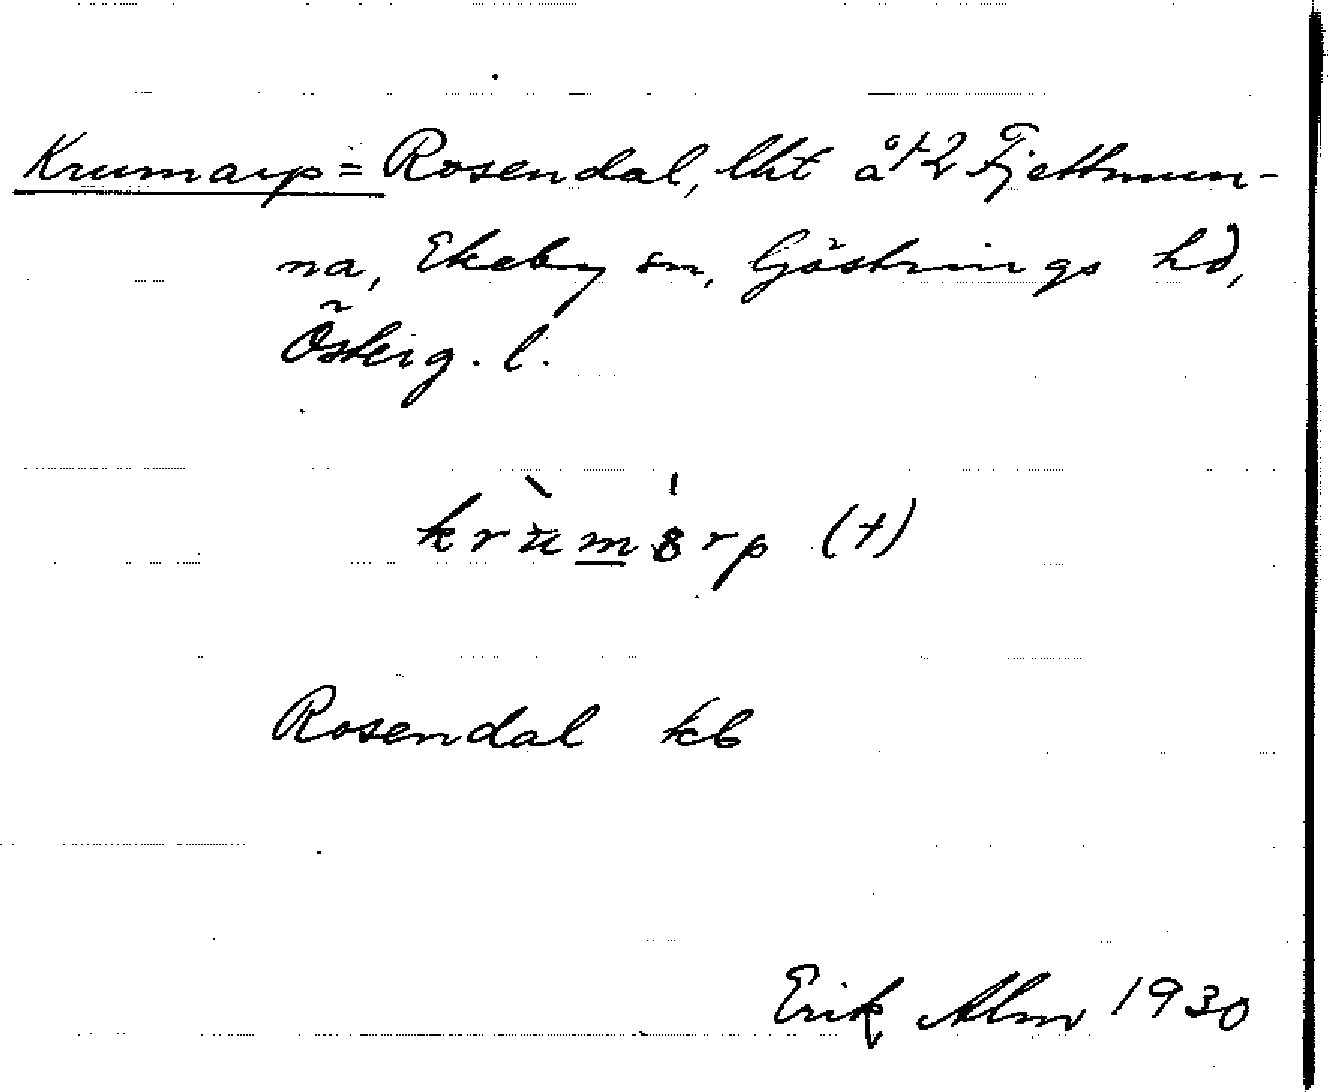 Krumarp = Rosendal, lht å 1/2 Fjettmun-
na, Ekeby sn, Göstrings hd,
Österg. l.
krùmarp (+)
Rosendal kb
Erik Alm 1930